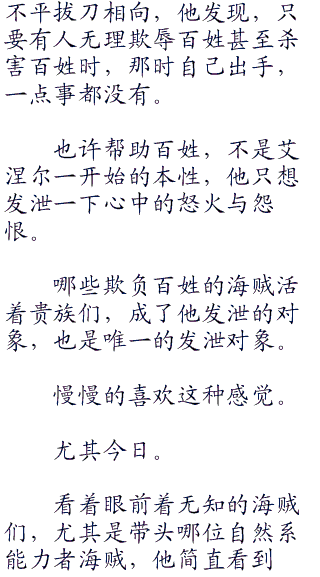 不平拔刀相向，他发现，只
要有人无理欺辱百姓甚至杀
害百姓时，那时自己出手，
一点事都没有。
也许帮助百姓，不是艾
涅尔一开始的本性，他只想
发泄一下心中的怒火与怨
恨。
哪些欺负百姓的海贼活
着贵族们，成了他发泄的对
象，也是唯一的发泄对象。
慢慢的喜欢这种感觉。
尤其今日。
看着眼前着无知的海贼
们，尤其是带头哪位自然系
能力者海贼，他简直看到